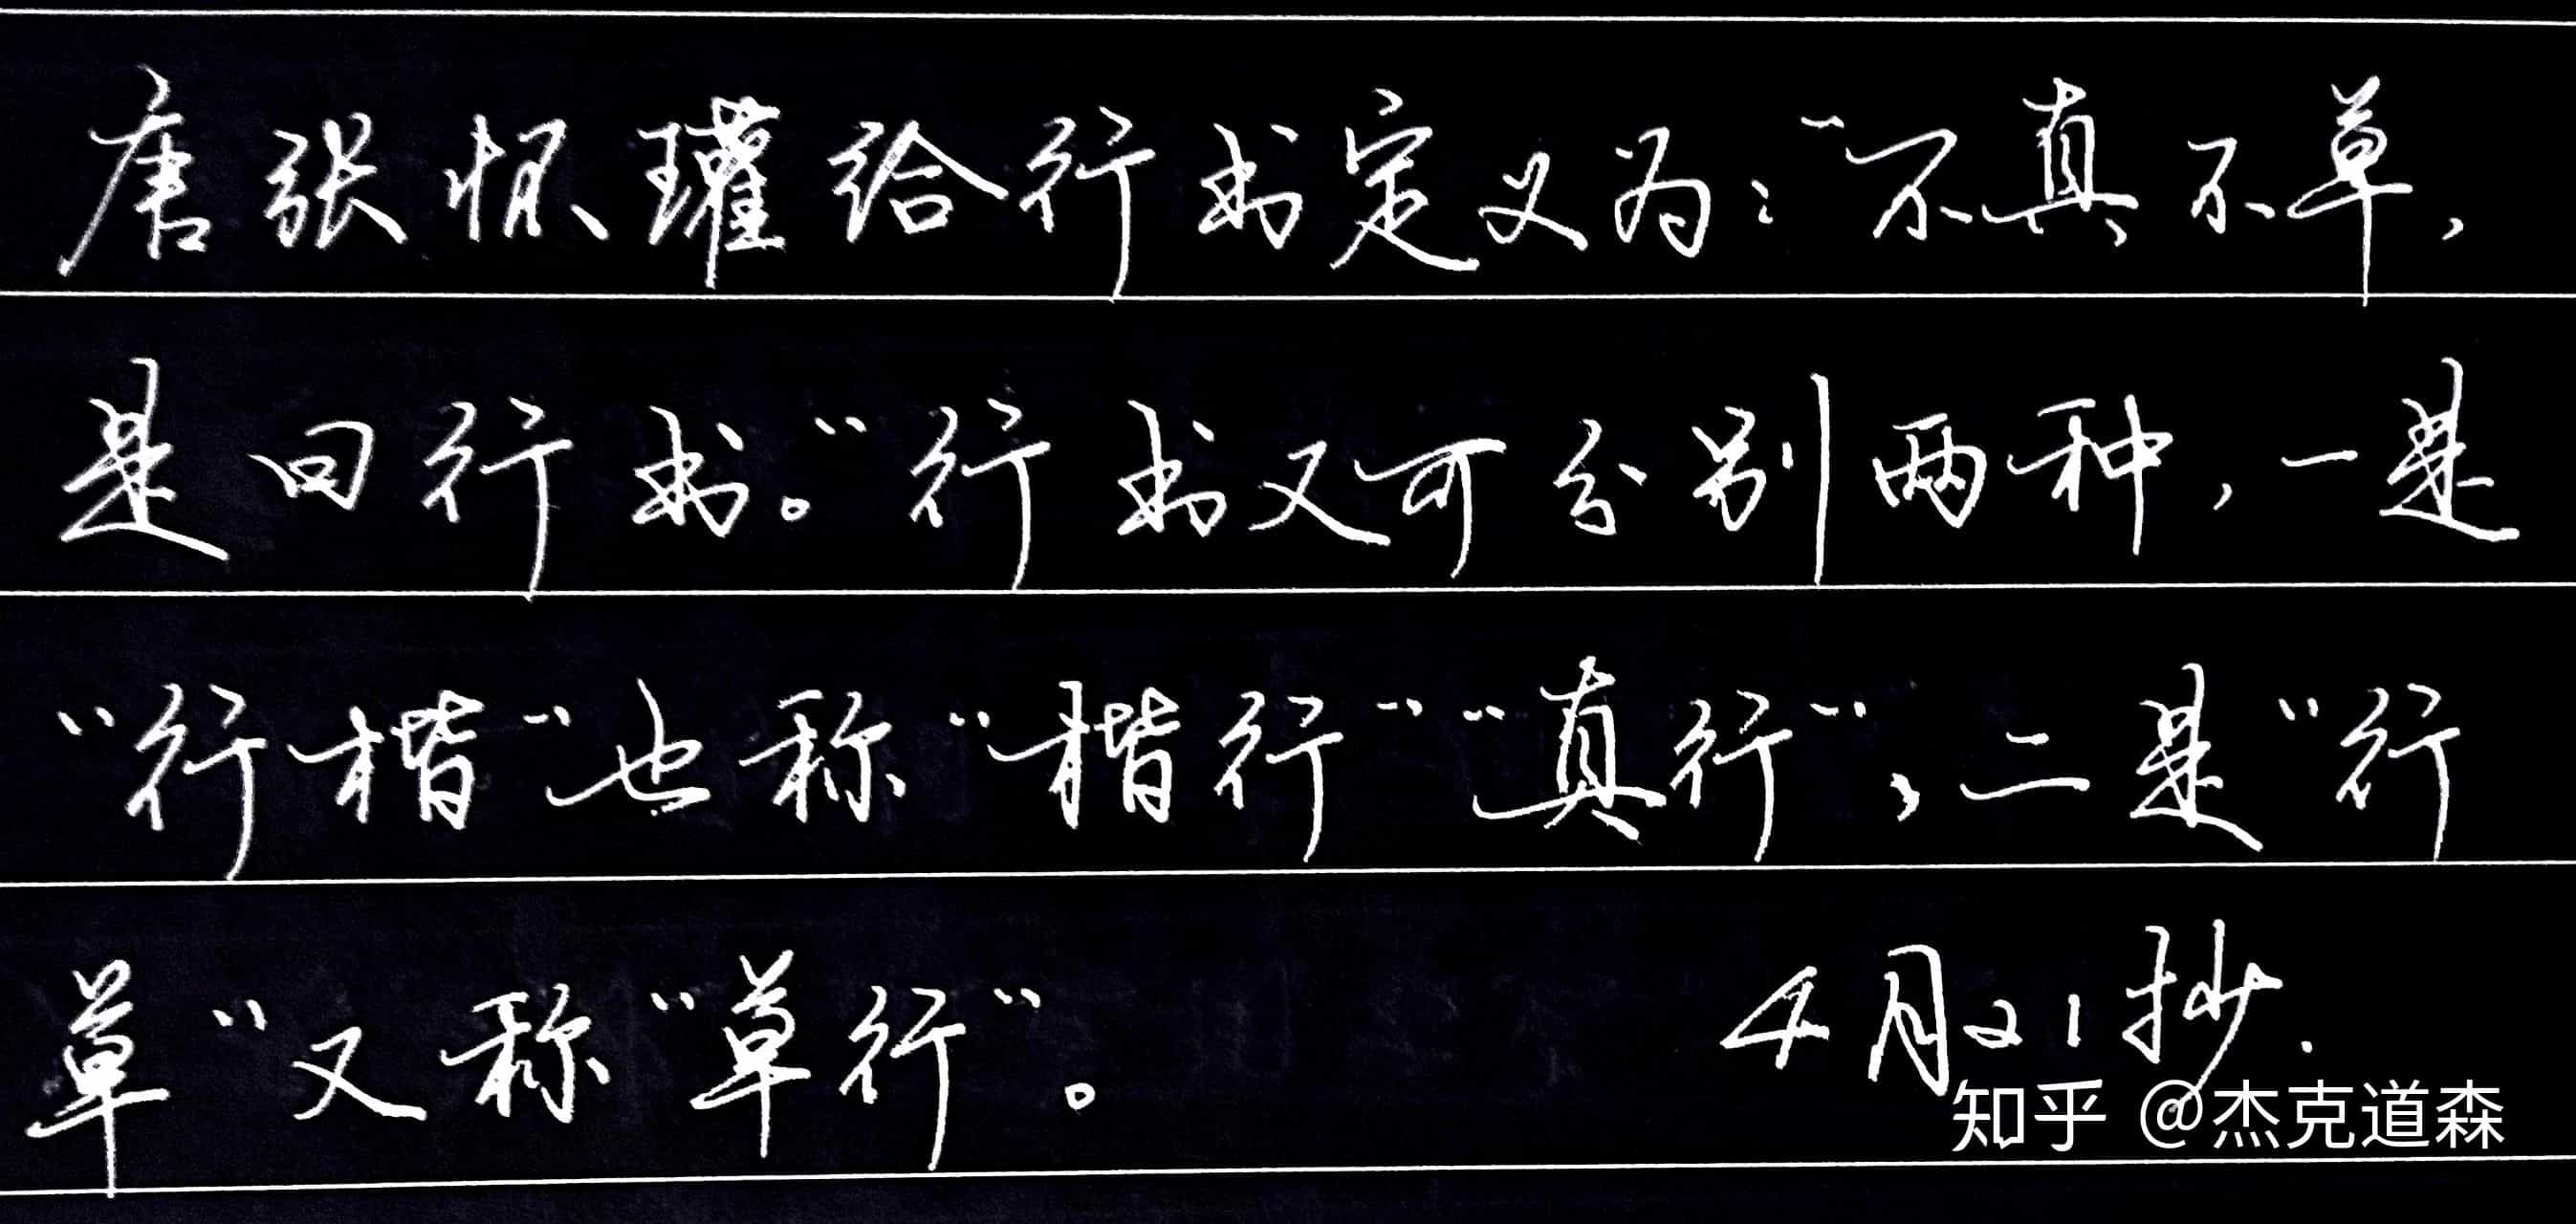 唐张怀瓘给行书定义为：“不真不草，
是曰行书。”行书又可分别两种，一是
“行楷”也称“楷行”“真行”，二是“行
草”又称“草行”。
4月21抄.
知乎 @杰克道森